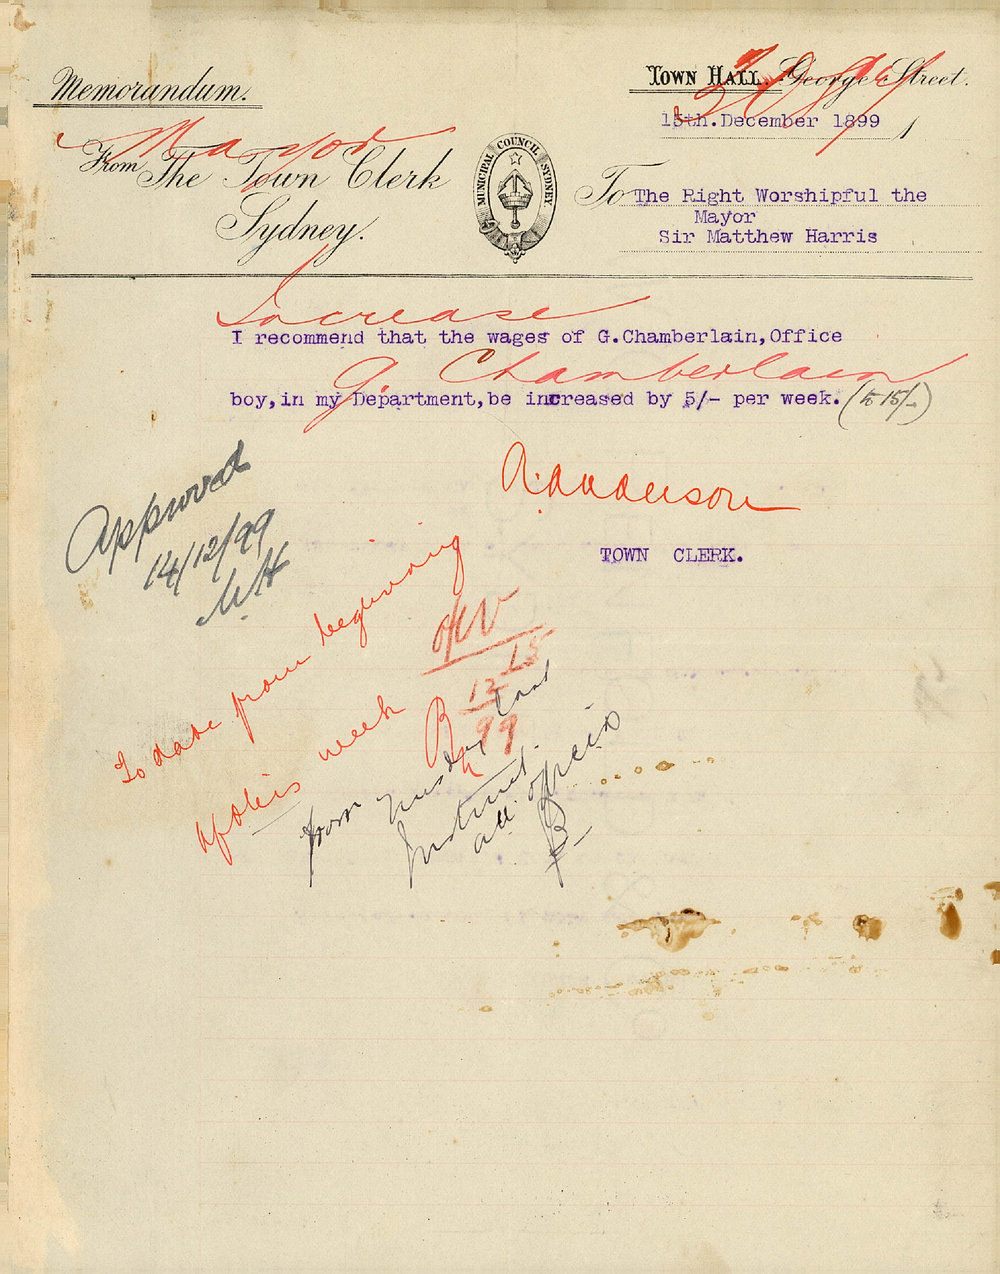 Memorandum.
TOWN HALL. George Street.
15th. December 1899
Mayor
From The Town Clerk
Sydney.
MUNICIPAL COUNCIL SYDNEY
To The Right Worshipful the
Mayor
Sir Matthew Harris
Increase
I recommend that the wages of G.Chamberlain,Office
G. Chamberlain
boy,in my Department,be increased by 5/- per week. (to 15/-)
TOWN CLERK.
Approved
14/12/99
MH
To date from beginning
of this week
15
12
99
from Tuesday last
Instruct
all